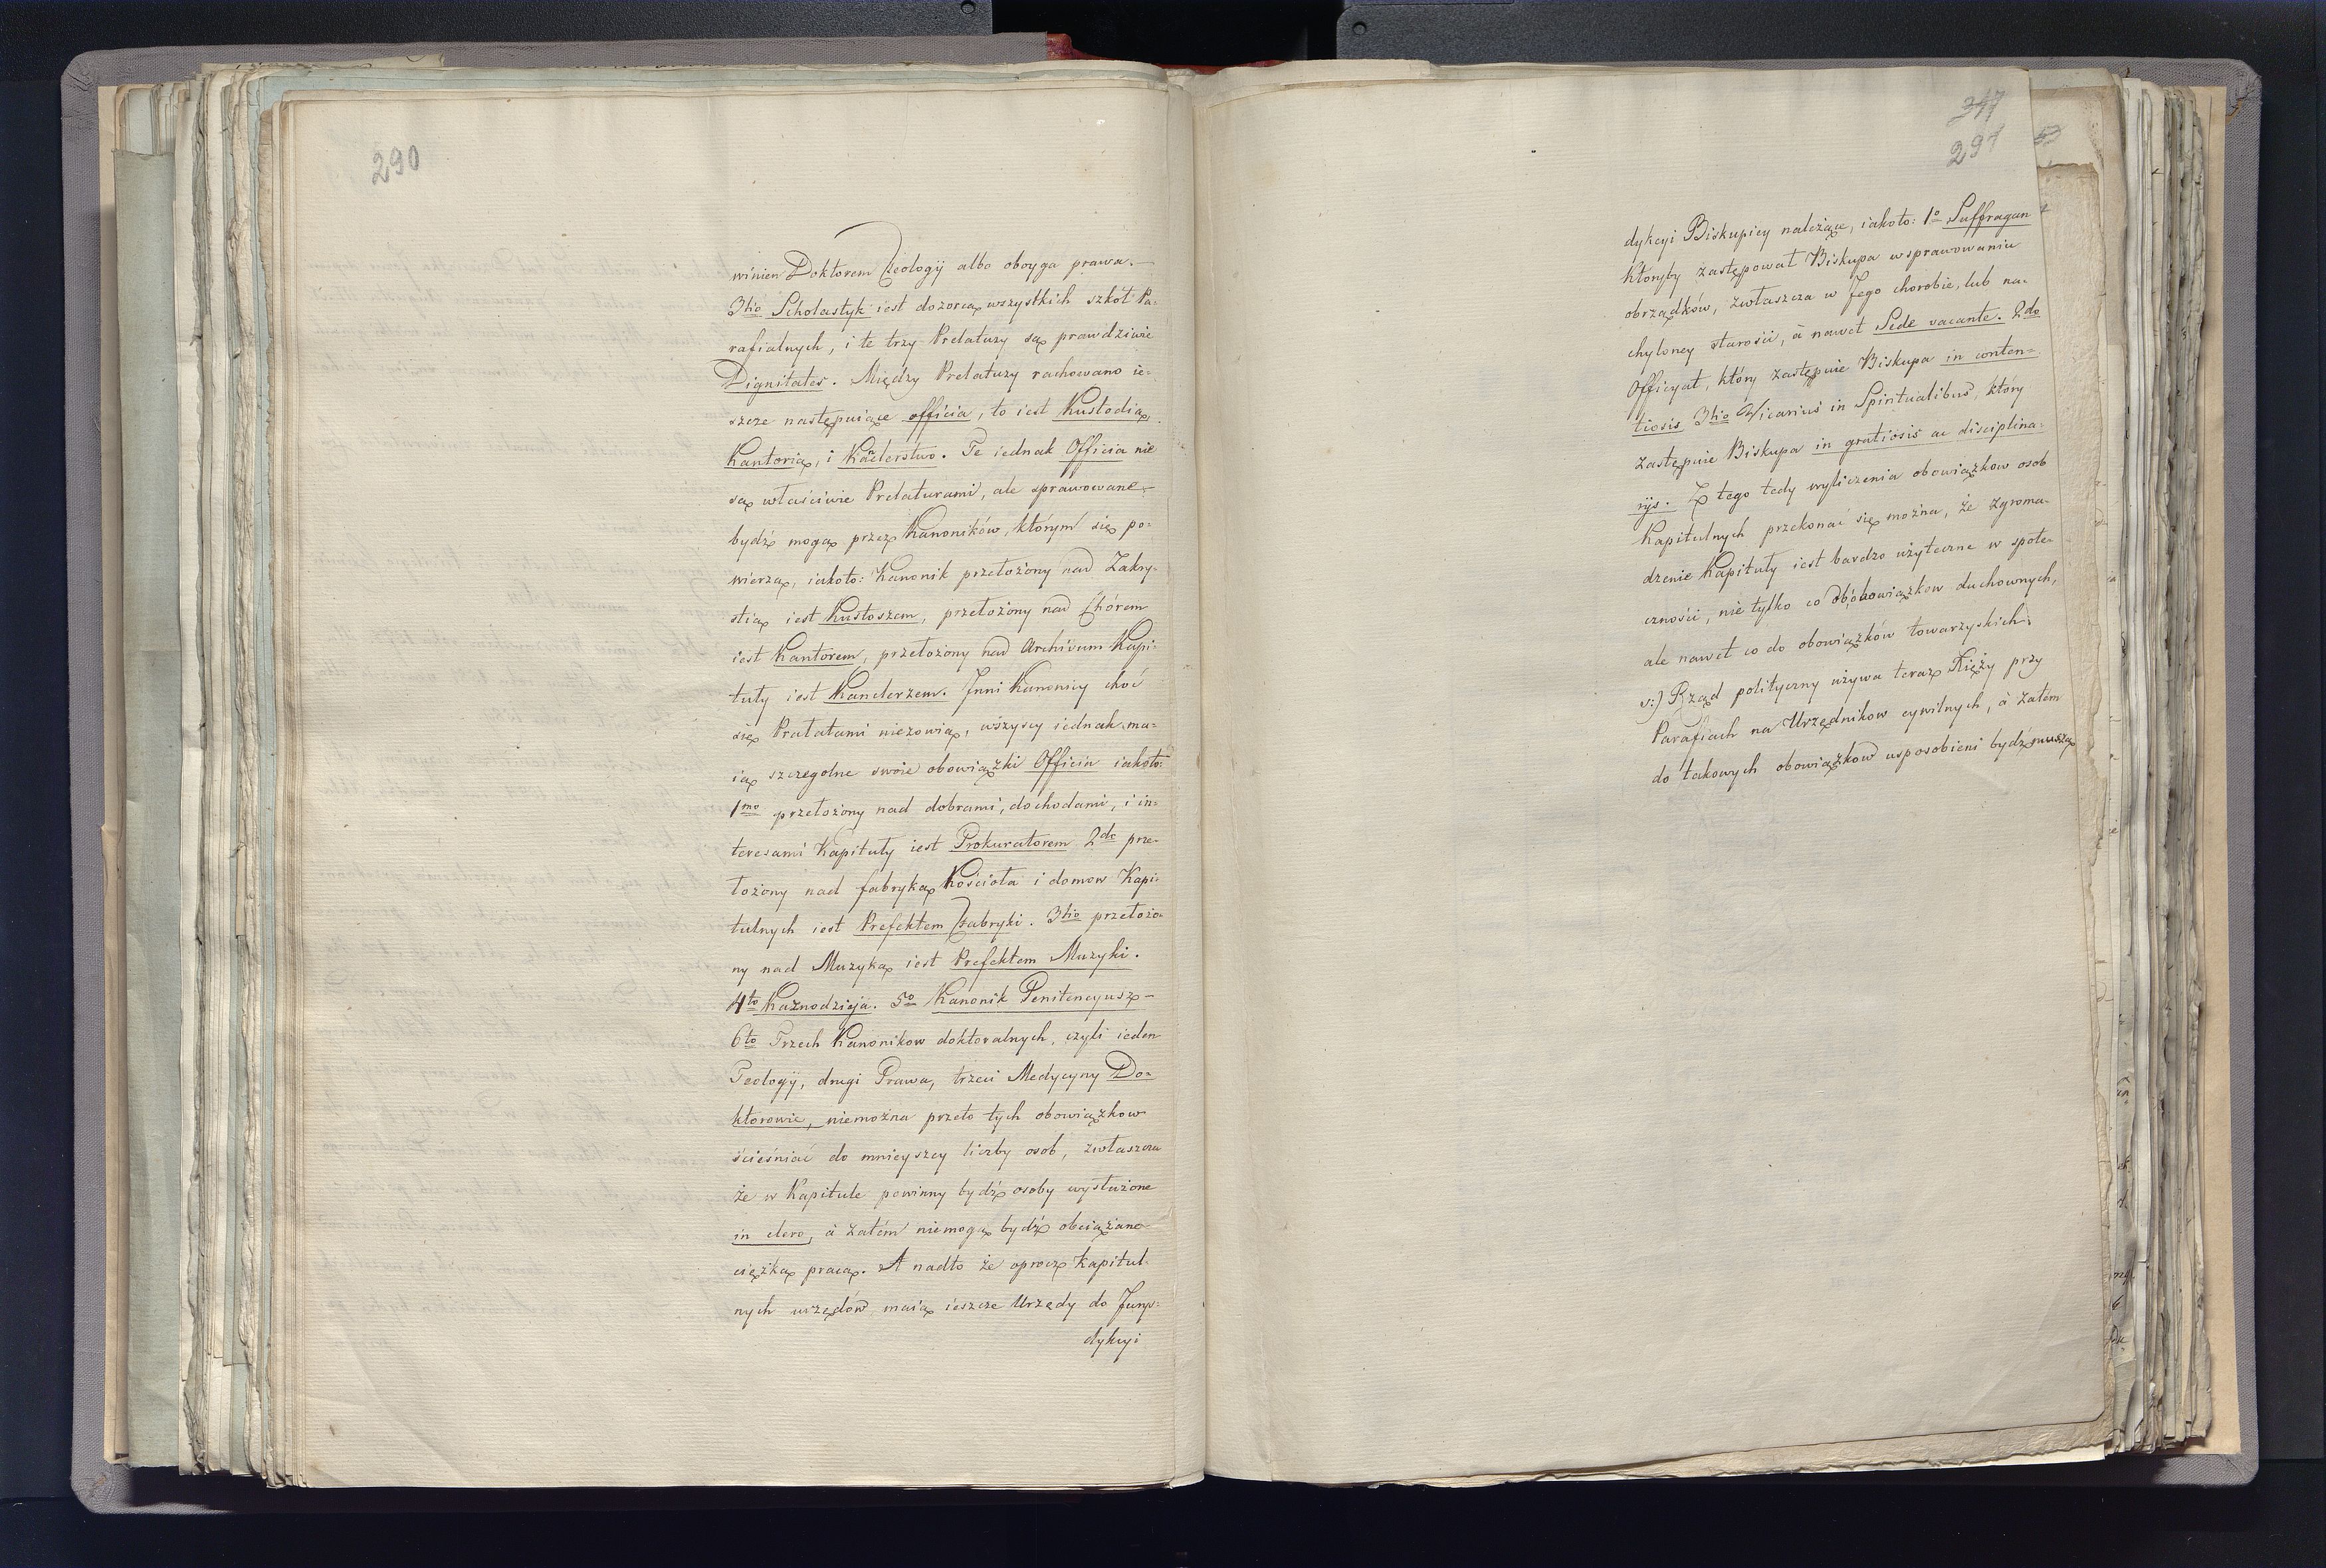 290
winien Doktorem Teologij albo oboyga prawa.—
3tio Scholastyk iest dozorcą wszystkich szkół Pa=
rafialnych, i te trzy Prelatury są prawdziwie
Dignitates. Między Prelatury rachowano ie=
szcze następuiące officia, to iest Kustodią,
Kantorią, i Kanclerstwo. Te iednak Officia nie
są właściwie Prelaturami, ale sprawowane
bydź mogą przez Kanoników, którym się po=
wierzą, iakoto: Kanonik przełożony nad Zakry=
stią iest Kustoszem, przełożony nad Chórem
iest Kantorem, przełożony nad Archivum Kapi=
tuły iest Kanclerzem. Inni Kanonicy choć
się Prałatami niezowią, wszyscy iednak ma=
ią szczegolne swoie obowiązki Officia iakoto:
1mo przełożony nad dobrami, dochodami, i in=
teresami Kapituły iest Prokuratorem 2do prze=
łożony nad fabryką Kościoła i domow Kapi=
tulnych iest Prefektem Fabryki. 3tio przełożo=
ny nad Muzyką iest Prefektem Muzyki.
4to Kaznodzieja. 5o Kanonik Penitencyusz—
6to Trzech Kanonikow doktoralnych, czyli ieden
Teologij, drugi Prawa, trzeci Medycyny Do=
ktorowie, niemożna przeto tych obowiązkow
ścieśniać do mnieyszey liczby osob, zwłaszcza
że w Kapitule powinny bydź osoby wysłużone
in clero, à zatém niemogą bydź obciążane
ciężką pracą. A nadto że oprocz Kapitul=
nych urzędów maią ieszcze Urzędy do Jurys=
dykcyi
317
291
dykcyi Biskupiey należące, iakoto: 1o Suffragan
Któryby zastępował Biskupa w sprawowaniu
obrządków, zwłaszcza w Jego chorobie, lub na=
chyloney starości, à nawet Sede vacante. 2do
Officyał, który zastępuie Biskupa in conten=
tiosis 3tio Vicarius in Spiritualibus, który
zastępuie Biskupa in gratiosis ac disciplina=
rijs. Z tego tedy wyliczenia obowiązkow osob
Kapitulnych przekonać się można, że zgroma=
dzenie Kapituły iest bardzo użyteczne w społe=
czności, nie tylko co do obowiązkow duchownych,
ale nawet co do obowiązków towarzyskich.
s:) Rząd polityczny używa teraz Xięży przy
Parafiach na Urzędnikow cywilnych, à zatém
do takowych obowiązkow usposobieni bydź muszą